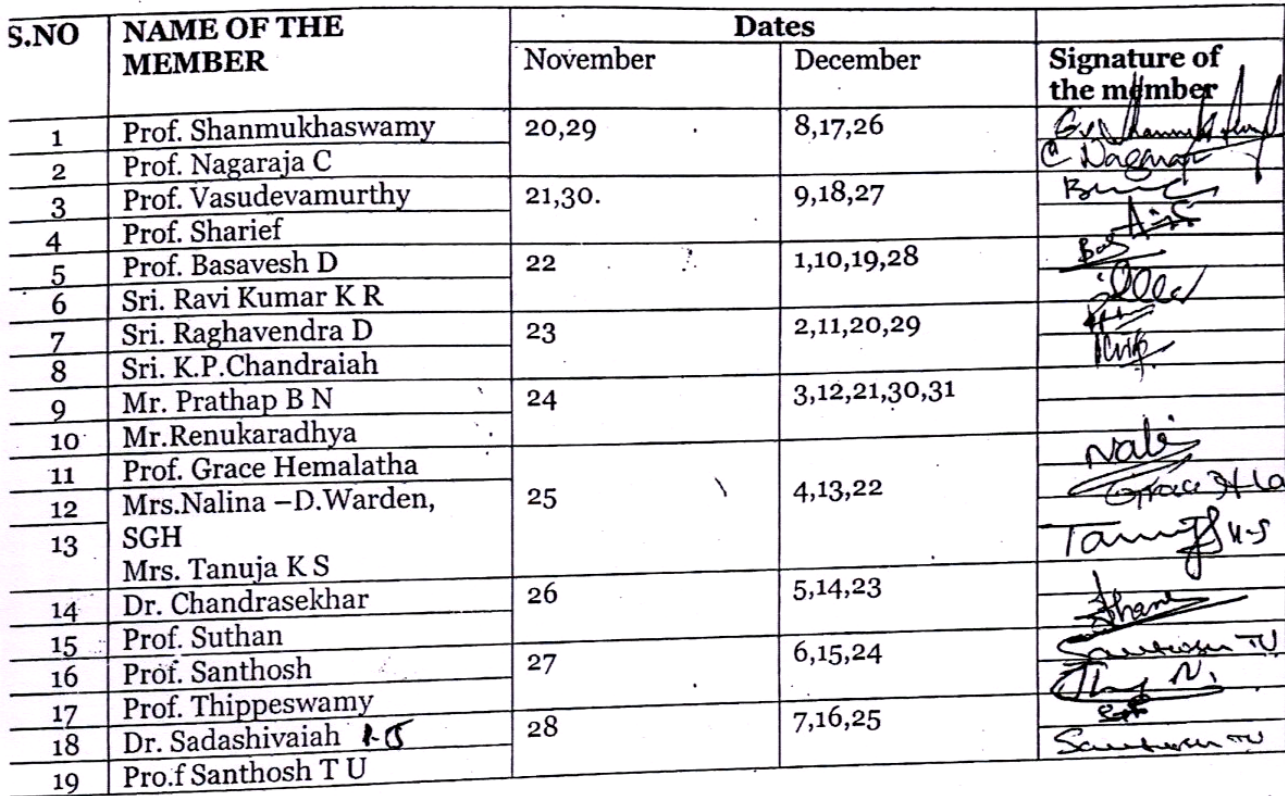 S.NO NAME OF THE MEMBER Dates
November December Signature of the member
1 Prof. Shanmukhaswamy 20,29 8,17,26
2 Prof. Nagaraja C
3 Prof. Vasudevamurthy 21,30. 9,18,27
4 Prof. Sharief
5 Prof. Basavesh D 22 1,10,19,28
6 Sri. Ravi Kumar K R
7 Sri. Raghavendra D 23 2,11,20,29
8 Sri. K.P.Chandraiah
9 Mr. Prathap B N 24 3,12,21,30,31
10 Mr.Renukaradhya
11 Prof. Grace Hemalatha
12 Mrs.Nalina –D.Warden, 25 4,13,22
13 SGH
Mrs. Tanuja K S
14 Dr. Chandrasekhar 26 5,14,23
15 Prof. Suthan
16 Prof. Santhosh 27 6,15,24 Santhosh TU
17 Prof. Thippeswamy
18 Dr. Sadashivaiah 28 7,16,25
19 Pro.f Santhosh T U Santhosh TU